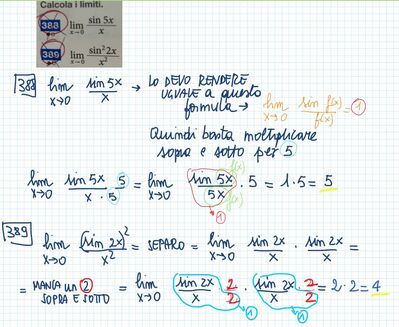 Calcola i limiti.
388 lim x→0 sin 5x / x
389 lim x→0 sin² 2x / x²
388 lim x→0 sin 5x / x → LO DEVO RENDERE
UGUALE a questo
formula → lim x→0 sin f(x) / f(x) = 1
Quindi basta moltiplicare
sopra e sotto per 5
lim x→0 sin 5x / x · 5 / 5 = lim x→0 sin 5x / 5x · 5 = 1·5 = 5
f(x)
f(x)
1
389 lim x→0 (sin 2x)² / x² = SEPARO = lim x→0 sin 2x / x · sin 2x / x =
= MANCA un 2
SOPRA E SOTTO = lim x→0 sin 2x / x · 2 / 2 · sin 2x / x · 2 / 2 = 2·2 = 4
1 1